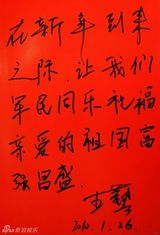 在新年到来
之际,让我们
军民同乐祝福
亲爱的祖国富
强昌盛.
王艺
2010.1.26
新浪娱乐